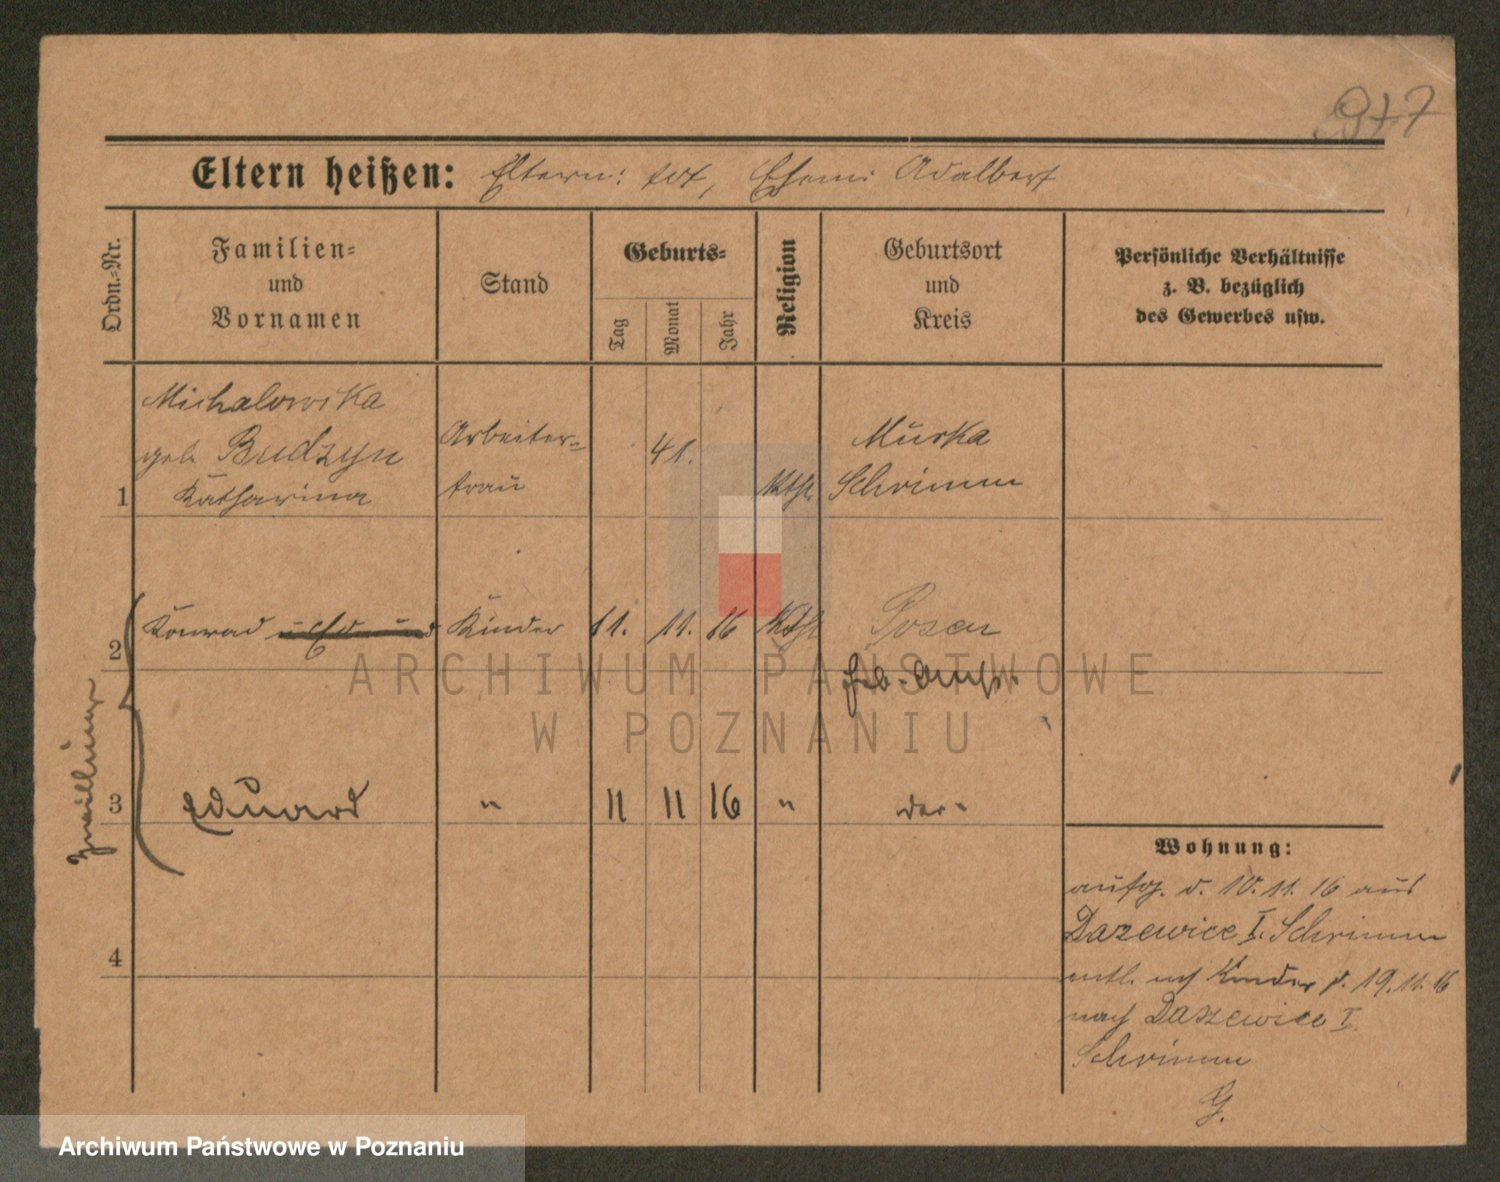 977
Eltern heißen: Eltern: tot, Ehem: Adalbert
Ordn.-Nr.
Familien-
und
Vornamen
Stand
Geburts-
Tag
Monat
Jahr
Religion
Geburtsort
und
Kreis
Persönliche Verhältnisse
z. B. bezüglich
des Gewerbes usw.
Michalowska
geb. Budzyn
1 Katharina
Arbeiter-
frau
41.
kth.
Murka
Schrimm
2 Konrad Kinder 11. 11. 16 kth. Posen
Zwillinge
3 Eduard " 11 11 16 " der-
4
Wohnung:
aufg. d. 10.11.16 aus
Dazewice I. Schrimm
entl. Kinder d. 19.11.16
nach Daszewice I.
Schrimm
G.
ARCHIWUM PAŃSTWOWE
W POZNANIU
Archiwum Państwowe w Poznaniu